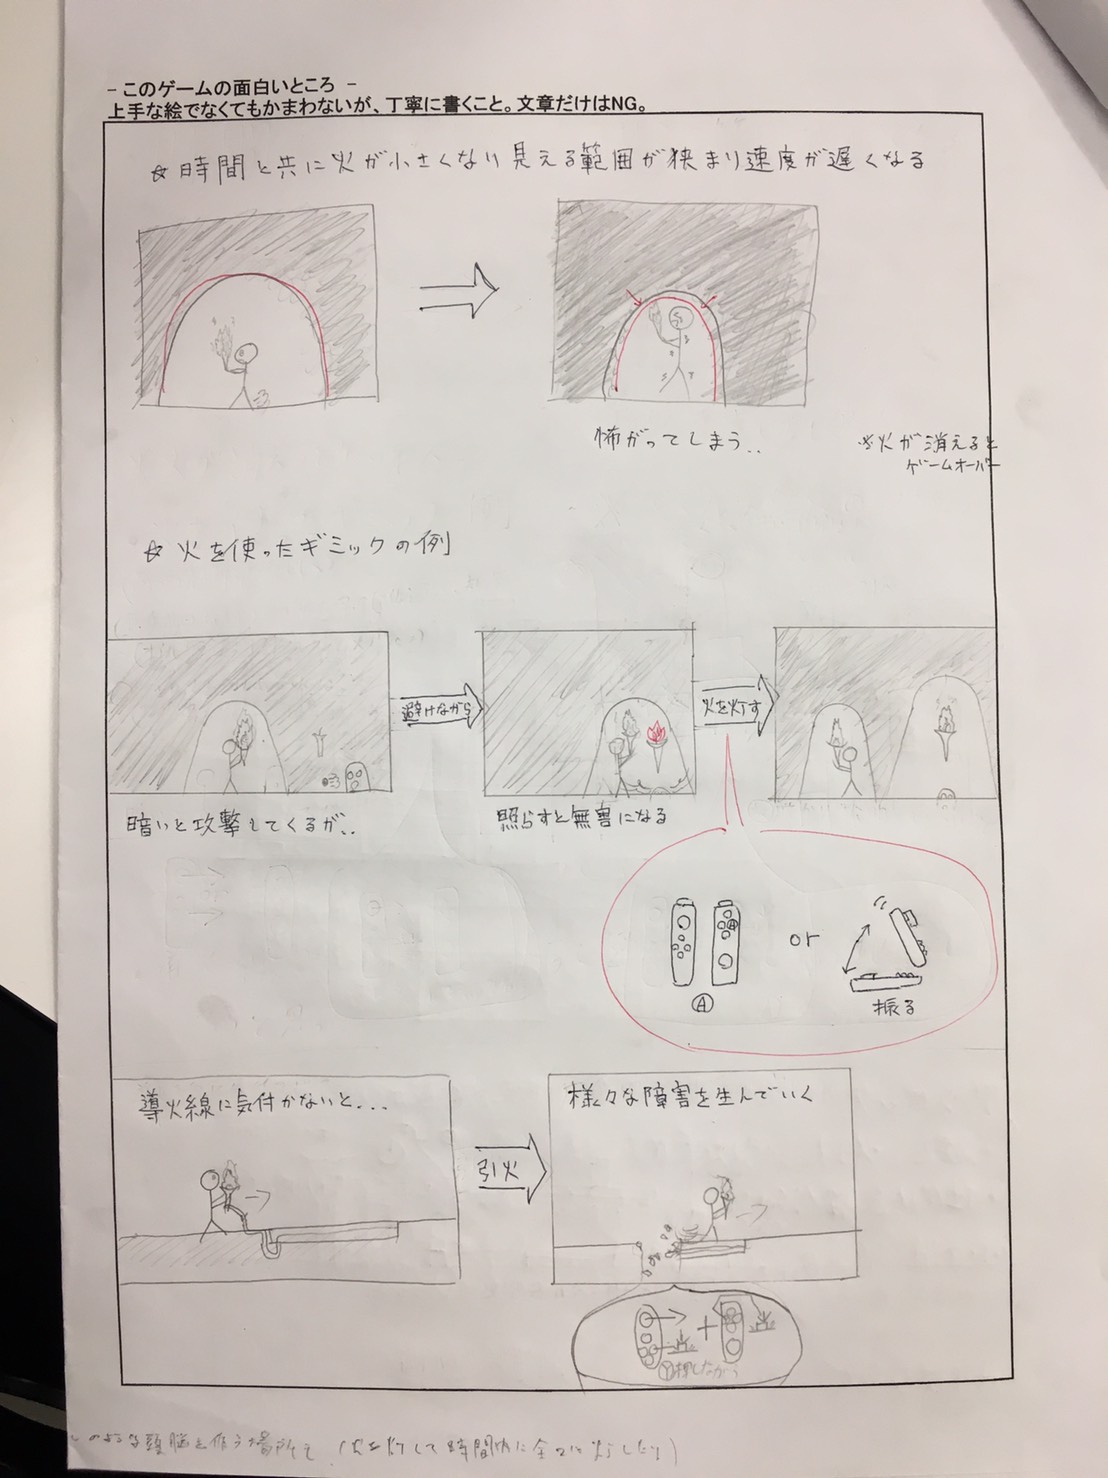 - このゲームの面白いところ -
上手な絵でなくてもかまわないが、丁寧に書くこと。文章だけはNG。
☆ 時間と共に火が小さくなり見える範囲が狭まり速度が遅くなる
怖がってしまう..
※火が消えると
ゲームオーバー
☆ 火を使ったギミックの例
避けながら
火を灯す
暗いと攻撃してくるが..
照らすと無害になる
or
Ⓐ
振る
導火線に気付かないと...
引火
様々な障害を生んでいく
+
Ⓨ押しながら
このような頭脳を使う場所も (火を灯して時間内に全てに灯したり)